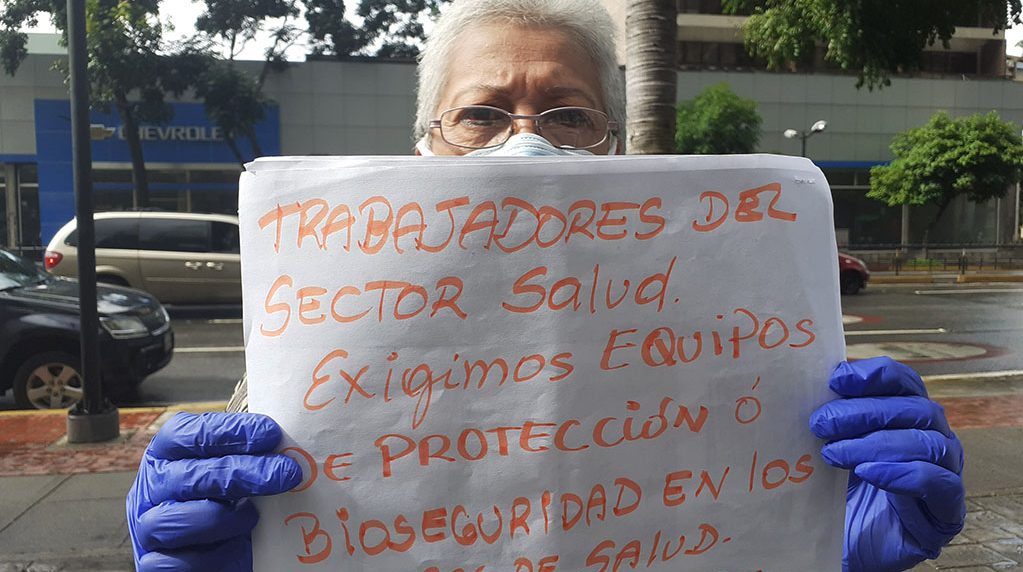 CHEVROLET
TRABAJADORES DEL
SECTOR Salud.
Exigimos EQUIPOS
DE PROTECCIÓN Ó
BIOSEGURIDAD EN LOS
DE SALUD.